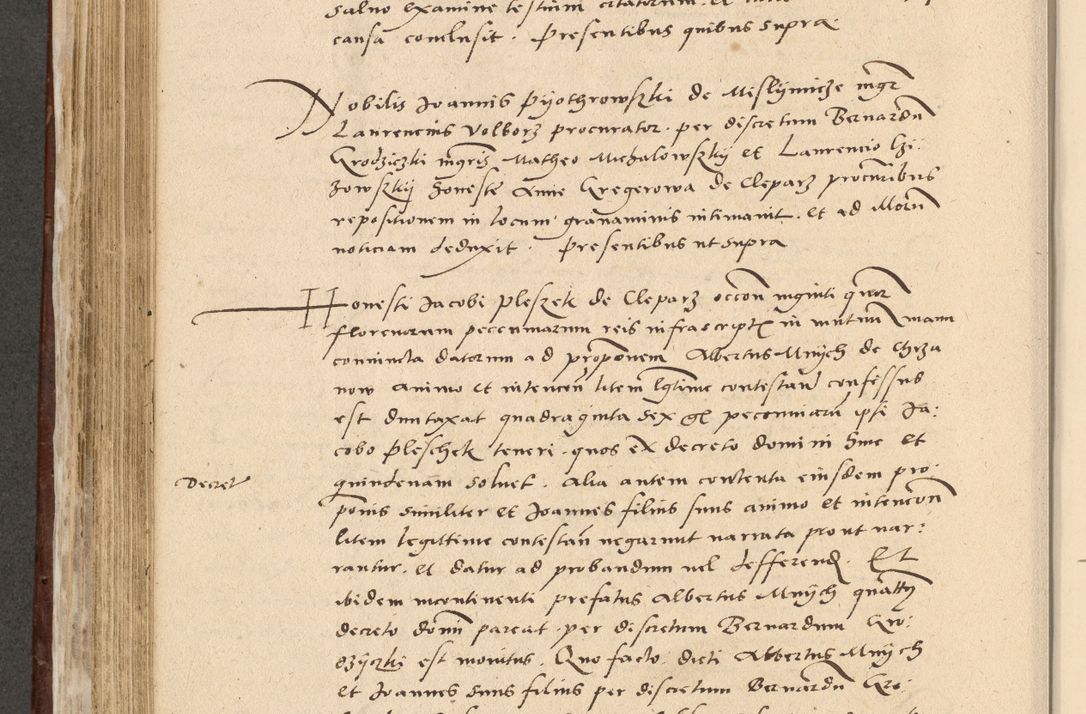 salvo examine testium citatorum. et
causa conclusit. Presentibus quibus supra.
Nobilis Joannis Pyothrowszki de Mislymicze mgr
Laurencius Volborz procurator. per discretum Bernardu
Grodziczki mgris Matheo Michalowszky et Laurencio
zowszky honeste Anne Gregerowa de Cleparz procuribus
repositionem in locum gravaminis intimavit. et ad illorum
noticiam deduxit. Presentibus ut supra
Honesti Jacobi Pleszek de Cleparz occon viginti quatuor
florenorum peccuniarum reis infrascript in mutuum manu
coniuncta datorum ad proponem Albertus Mnych de Chrza
now animo et intencon litem lgtime contestand confessus
est duntaxat quadraginta sex gl peccuniaru ipsi Ja:
cobo Pleschek teneri. quos ex decreto domini sine et
Decret
quindenam solvet. Alia autem contenta eiusdem pro.
ponis similiter et Joannes filius suus animo et intencon
litem legittime contestan negarunt narrata prout nar:
rantur. et datur ad probandum vel defferend. Et
ibidem incontinenti prefatus Albertus Mnych quatty
decreto domi pareat. per discretum Bernardum Gro:
dzyczki est monitus. Quo facto. dicti Albertus Mnych
et Joannes suus filius per discretum Bernardu Gro: